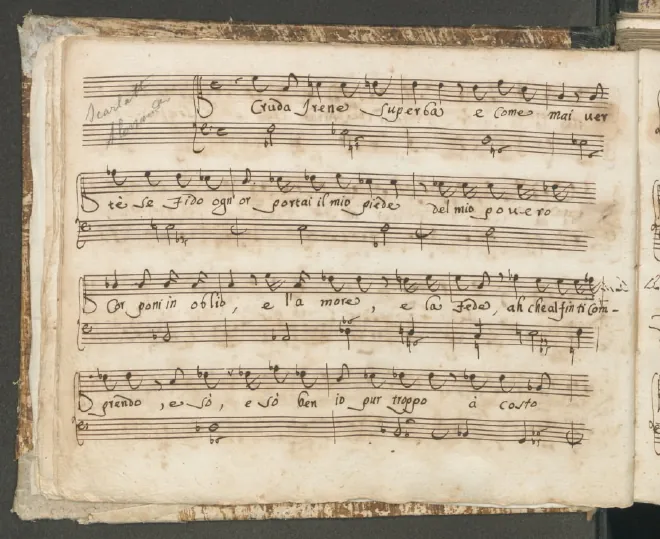 Scarlatti
Alessandro
Cruda Irene superba e come mai ver
tè se Fido ogn'or portai il mio piede del mio povero
Cor poni in oblio, e l'amore, e la Fede, ah che al fin ti Com-
prendo, e sò, e sò ben io pur troppo à costo